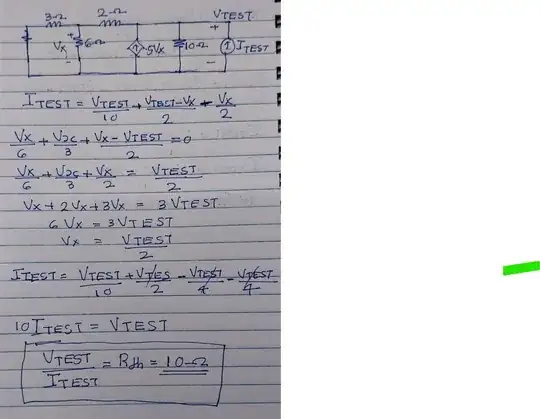 3Ω 2Ω VTEST
Vx + - 6Ω 5Vx 10Ω + - ITEST
ITEST = VTEST/10 + VTEST-Vx/2 + Vx/2
Vx/6 + Vx/3 + Vx - VTEST/2 = 0
Vx/6 + Vx/3 + Vx/2 = VTEST/2
Vx + 2Vx + 3Vx = 3VTEST
6Vx = 3VTEST
Vx = VTEST/2
ITEST = VTEST/10 + VTES/2 - VTEST/4 - VTEST/4
10ITEST = VTEST
VTEST/ITEST = Rth = 10Ω